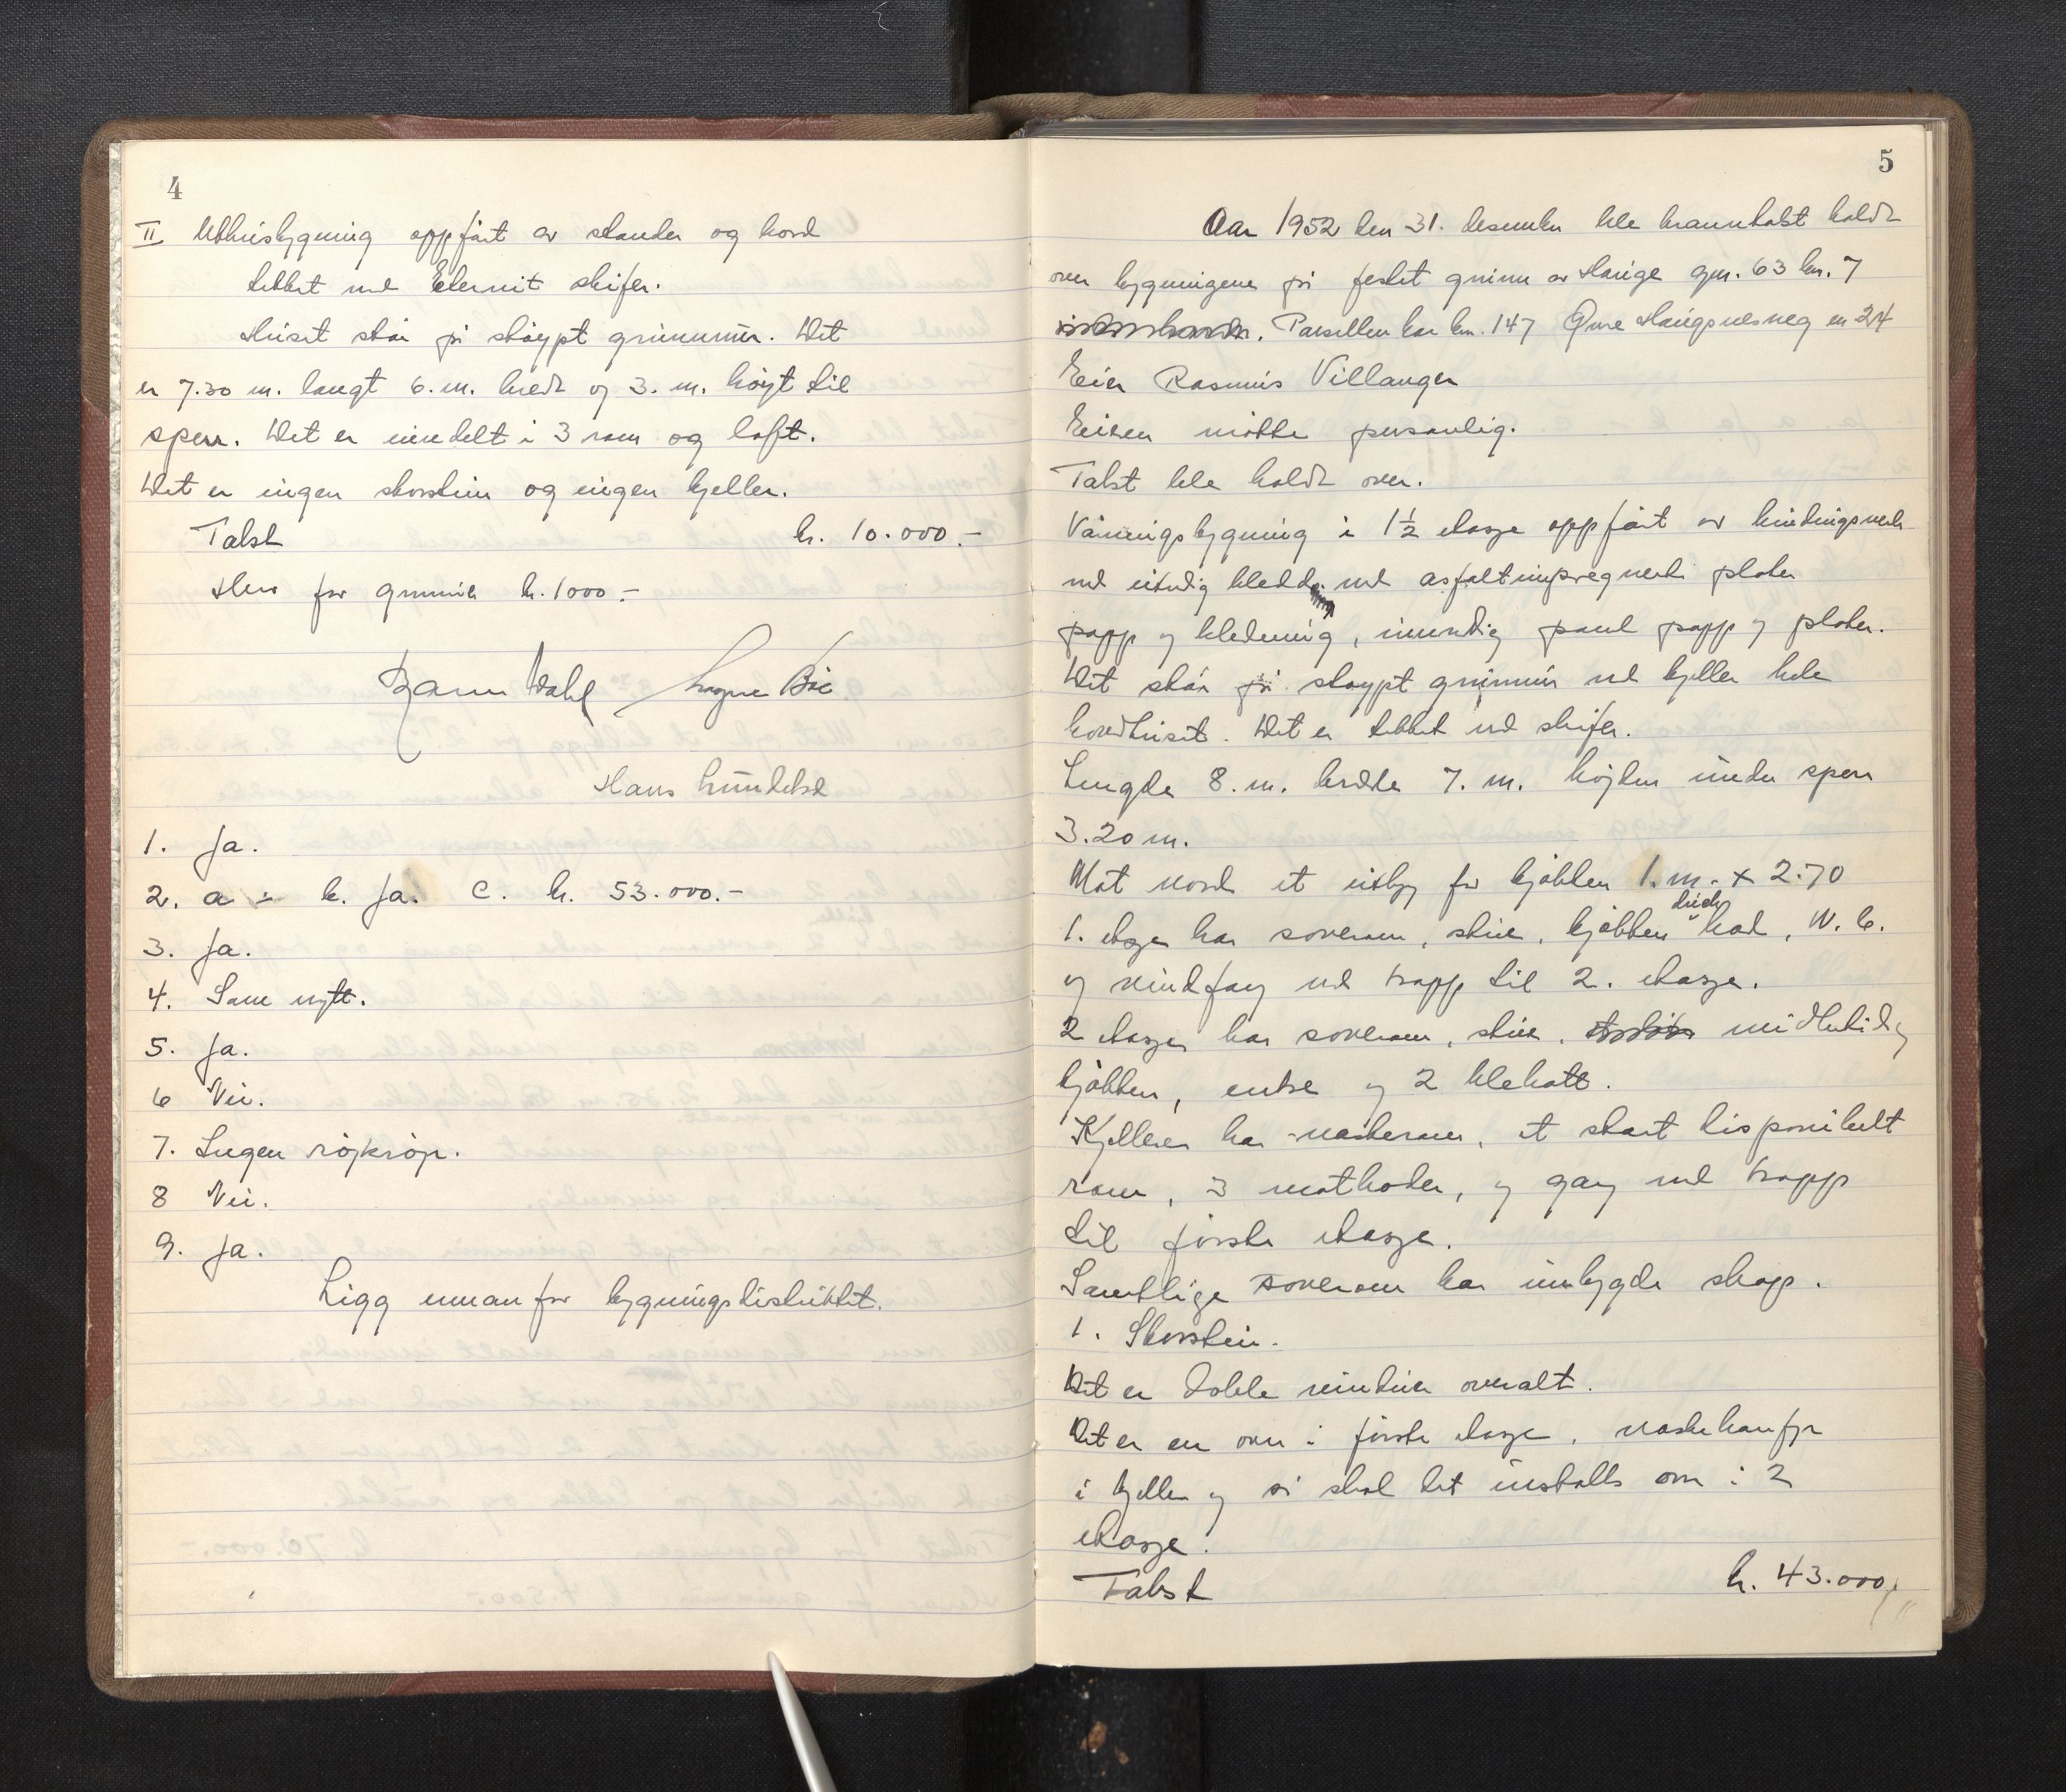 4
II Uthusbygning oppført av stander og bord
tekket med Eternit skifer.
Huset står på støypt grunnmur. Det
er 7.30 m. langt 6. m. bredt og 3. m. høyt til
sperr. Det er inndelt i 3 rom og loft.
Det er ingen skorstein og ingen kjeller.
Takst kr. 10.000.-
Herav for grunnmur kr. 1000.-
Bjarne Dahl Magne Bøe
Hans Lundekvd
1. Ja.
2. a ÷ b. Ja. c. kr. 53.000.-
3. Ja.
4. Som nytt.
5. Ja.
6 Nei.
7. Ingen røykrør.
8 Nei.
9. Ja.
Ligg innanfor bygningsdistriktet.
5
Aar 1952 den 31. desember ble branntakst holdt
over bygningene på festet grunn av Hauge gnr. 63 bnr. 7
. Parsellen har bnr. 147 Øvre Haugsnesveg nr 24
Eier Rasmus Villanger
Eieren møtte personlig.
Takst ble holdt over.
Våningsbygning i 1½ etasje oppført av bindingsverk
med utvendig kledd med asfaltimpregnerte plater
papp og kledning, innvendig panel papp og plater.
Det står på støypt grunnmur med kjeller hele
hovedhuset. Det er tekket med skifer.
Lengde 8. m. bredde 7. m. høyden under sperr
3.20 m.
Mot nord et utbygg for kjøkken 1. m. x 2.70
1. etasje har soverom, stue, kjøkken bad, W.C.
og vindfang med trapp til 2. etasje.
2 etasje har soverom, stue, midlertidig
kjøkken, entre og 2 klekott.
Kjelleren har vaskerom, et stort disponibelt
rom, 3 matboder, og gang med trapp
til første etasje.
Samtlige soverom har innbygde skap.
1. Skorstein.
Det er doble vinduer overalt.
Det er en ovn i første etasje, vaskekomfyr
i kjeller og så skal det installs ovn i 2
etasje.
Takst kr. 43.000,-